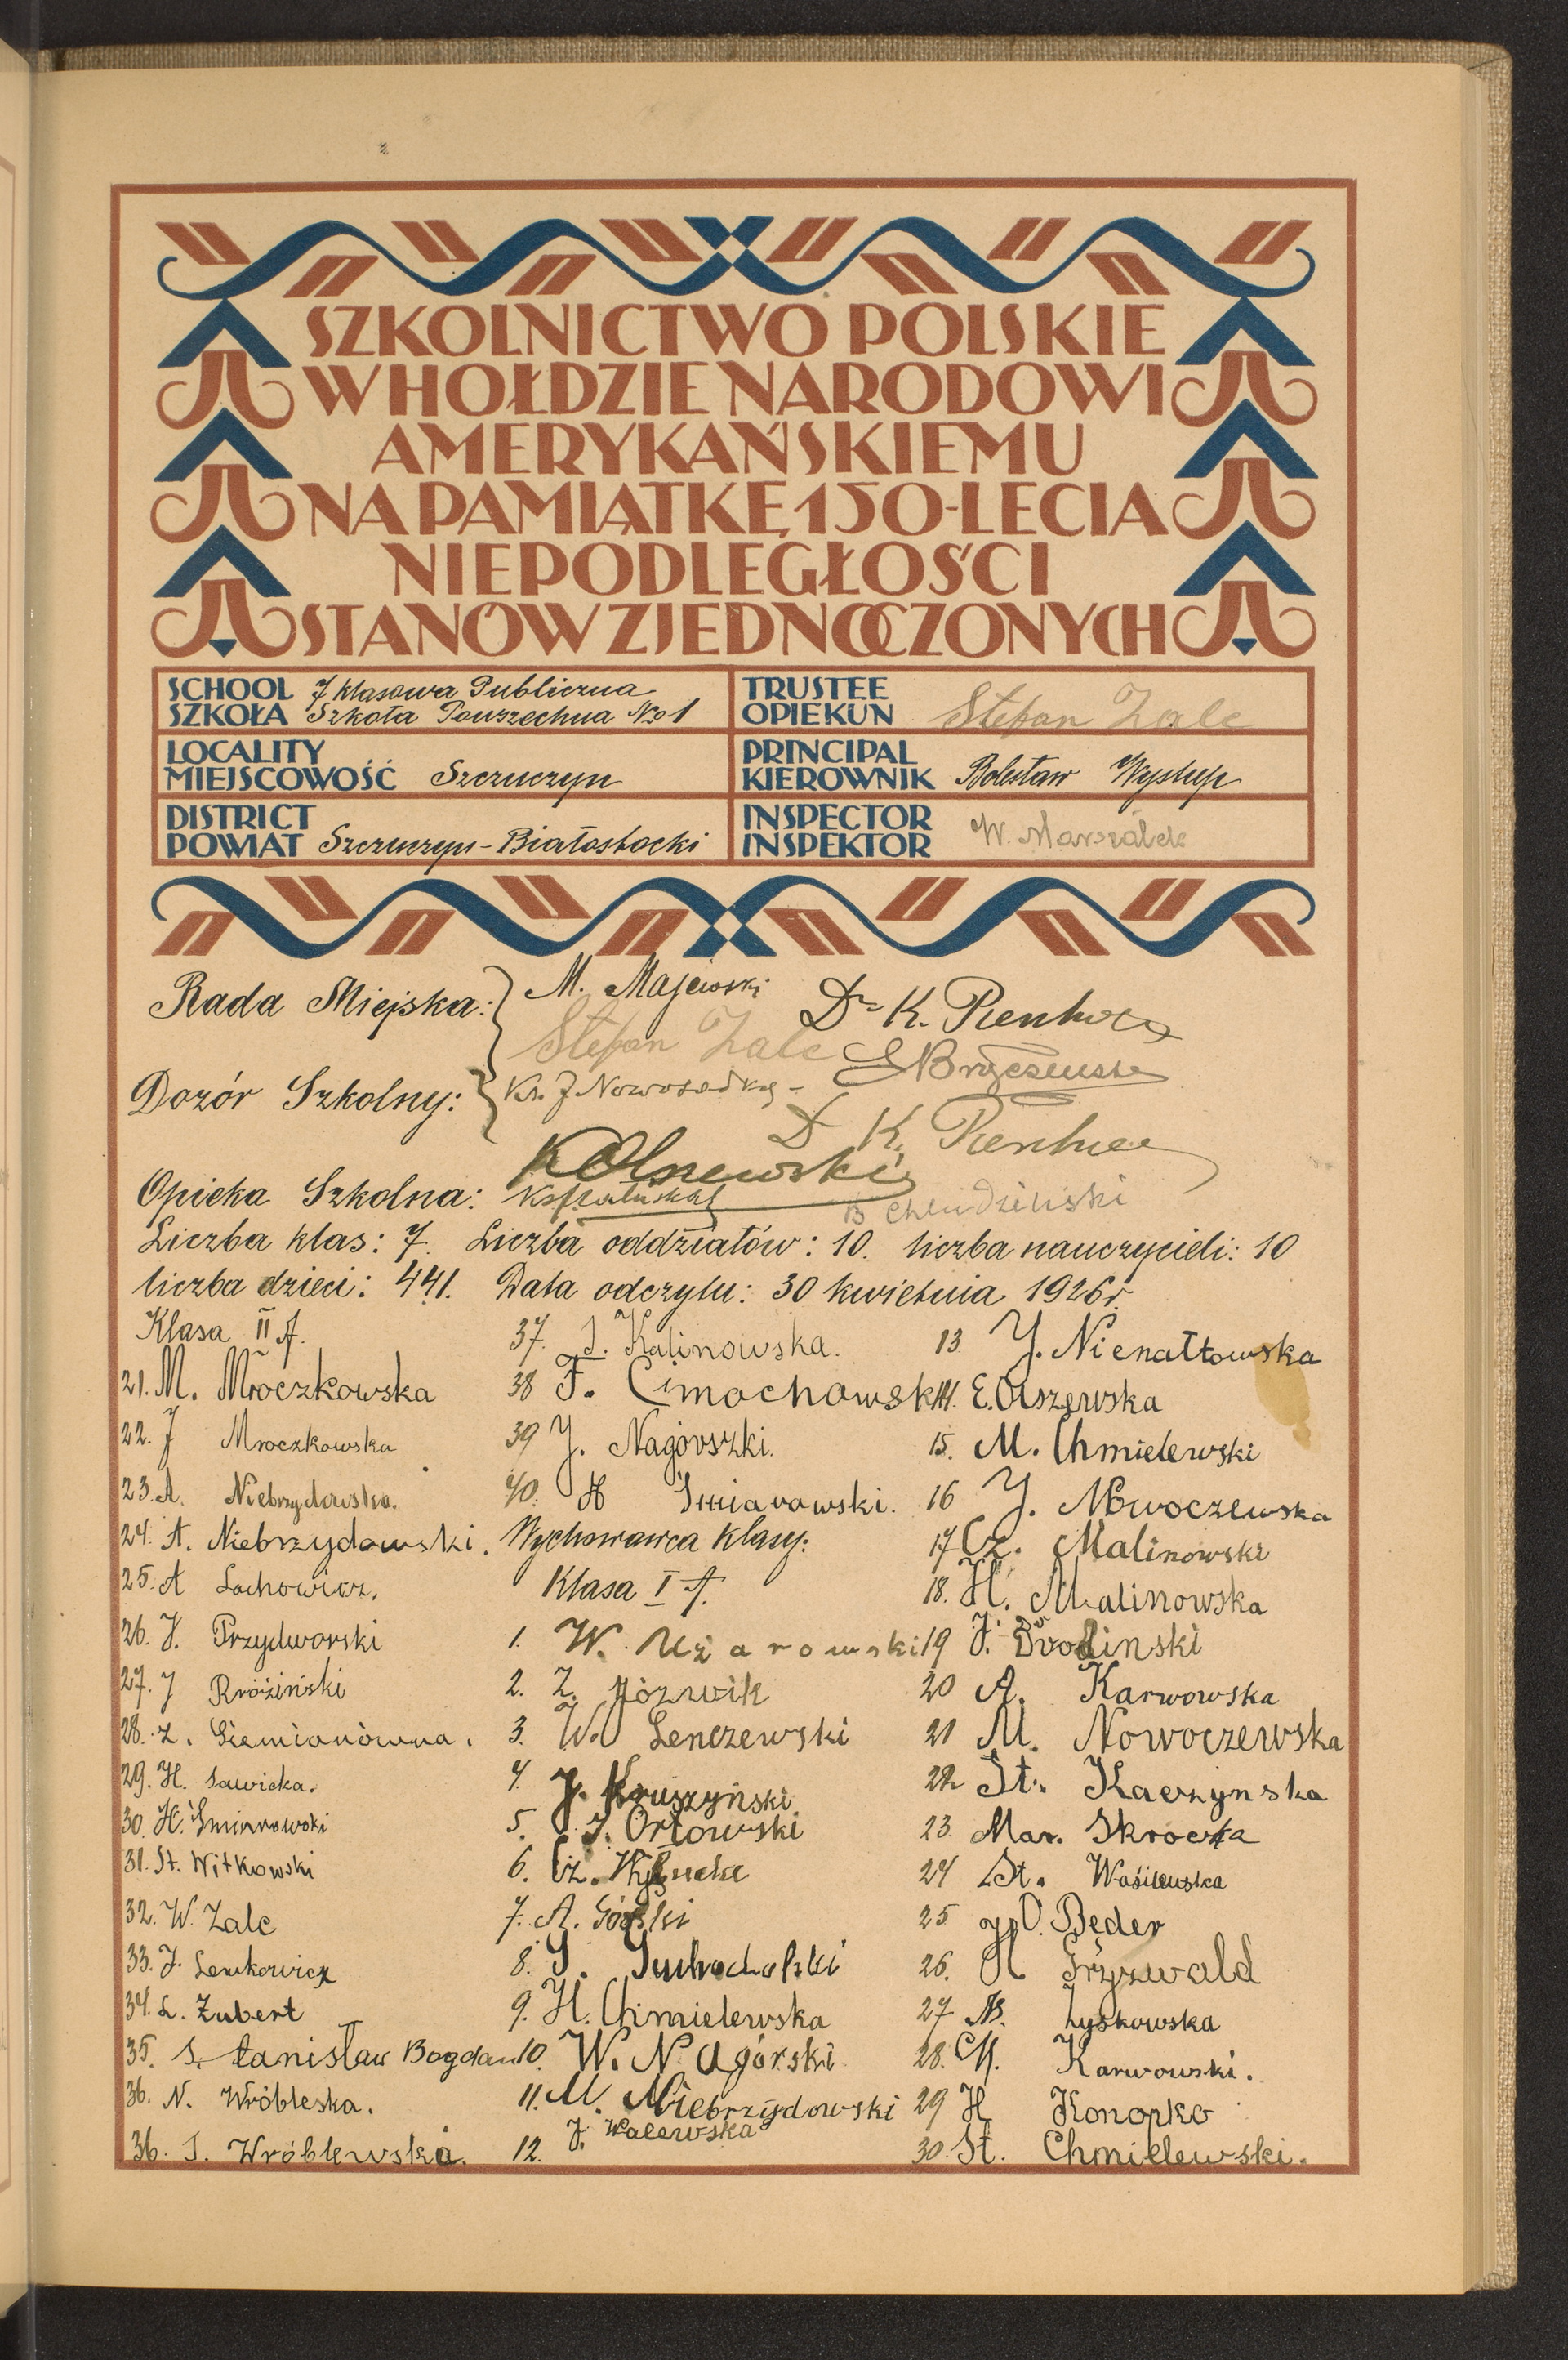 SZKOLNICTWO POLSKIE
W HOŁDZIE NARODOWI
AMERYKAŃSKIEMU
NA PAMIĄTKĘ 150-LECIA
NIEPODLEGŁOŚCI
STANÓW ZJEDNOCZONYCH
SCHOOL
SZKOŁA
7 klasowa Publiczna
Szkoła Powszechna No 1
TRUSTEE
OPIEKUN
Stefan Zale
LOCALITY
MIEJSCOWOŚĆ Szczuczyn
PRINCIPAL
KIEROWNIK Bolesław
DISTRICT
POWIAT Szczuczyn-Białostocki
INSPECTOR
INSPEKTOR W.
Rada Miejska: M. Majewski
Dr K.
Stefan Zale
Dozór Szkolny: Ks. J
D K.
K Olszewski
Opieka Szkolna:
B Chludziński
Liczba klas: 7. Liczba oddziałów: 10. liczba nauczycieli: 10
liczba dzieci: 441. Data odczytu: 30 kwietnia 1926 r.
Klasa II A.
21. M. Mroczkowska
22. J Mroczkowska
23. A. Niebrzydowska.
24. A. Niebrzydowski.
25. A Lachowicz.
26. J. Przydworski
27. J Różiński
28. Z. Siemionówna.
29. H. Sawicka.
30. H. Śmiarowski
31. St. Witkowski
32. W. Zale
33. J. Lewkowicz
34. L. Zubert
35. S. tanisław Bogdan
36. N. Wróbleska.
36. J. Wróblewska.
37. J. Kalinowska.
38 F. Cimochowsk
39 J. Nagórszki.
40. H Śmiarowski.
Wychowawca klasy:
Klasa I A.
1. W. Użarowski
2. Z. Józwik
3. W. Lenczewski
4. J. Kruszyński
5. J. Orłowski
6. Cz.
7. A. Górski
8. S.
9. H. Chmielewska
10. W. Nagórski
11. M. Niebrzydowski
12. J. Walewska
13 J. Nienałtowska
14. E. Olszewska
15. M. Chmielewski
16 J. Nowoczewska
17 Cz. Malinowski
18. H. Malinowska
19 J.
20 A. Karwowska
21 M. Nowoczewska
22 St. Kaczynska
23. Mar. Skrocka
24 St. Wasilewska
25 D. Beder
26. H Gryzwald
27 B. Łyskowska
28. M. Karwowski.
29 H Konopko
30. St. Chmielewski.